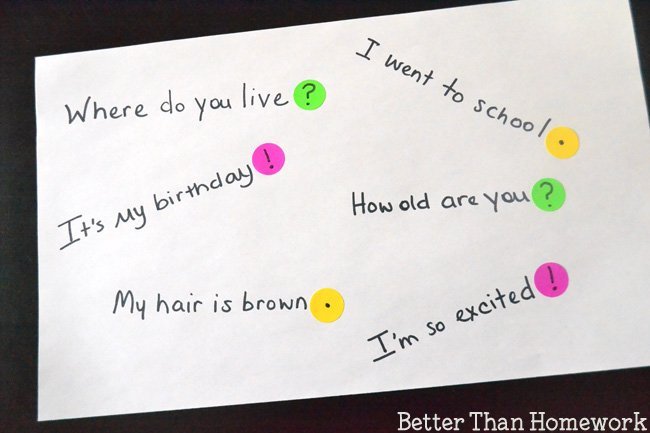 Where do you live?
I went to school.
It's my birthday!
How old are you?
My hair is brown.
I'm so excited!
Better Than Homework